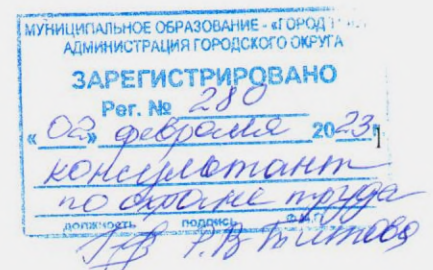 МУНИЦИПАЛЬНОЕ ОБРАЗОВАНИЕ - «ГОРОД
АДМИНИСТРАЦИЯ ГОРОДСКОГО ОКРУГА
ЗАРЕГИСТРИРОВАНО
Рег. № 280
«02» февраля 2023г
консультант
по охране труда
должность подпись Ф.И.О.
Титова